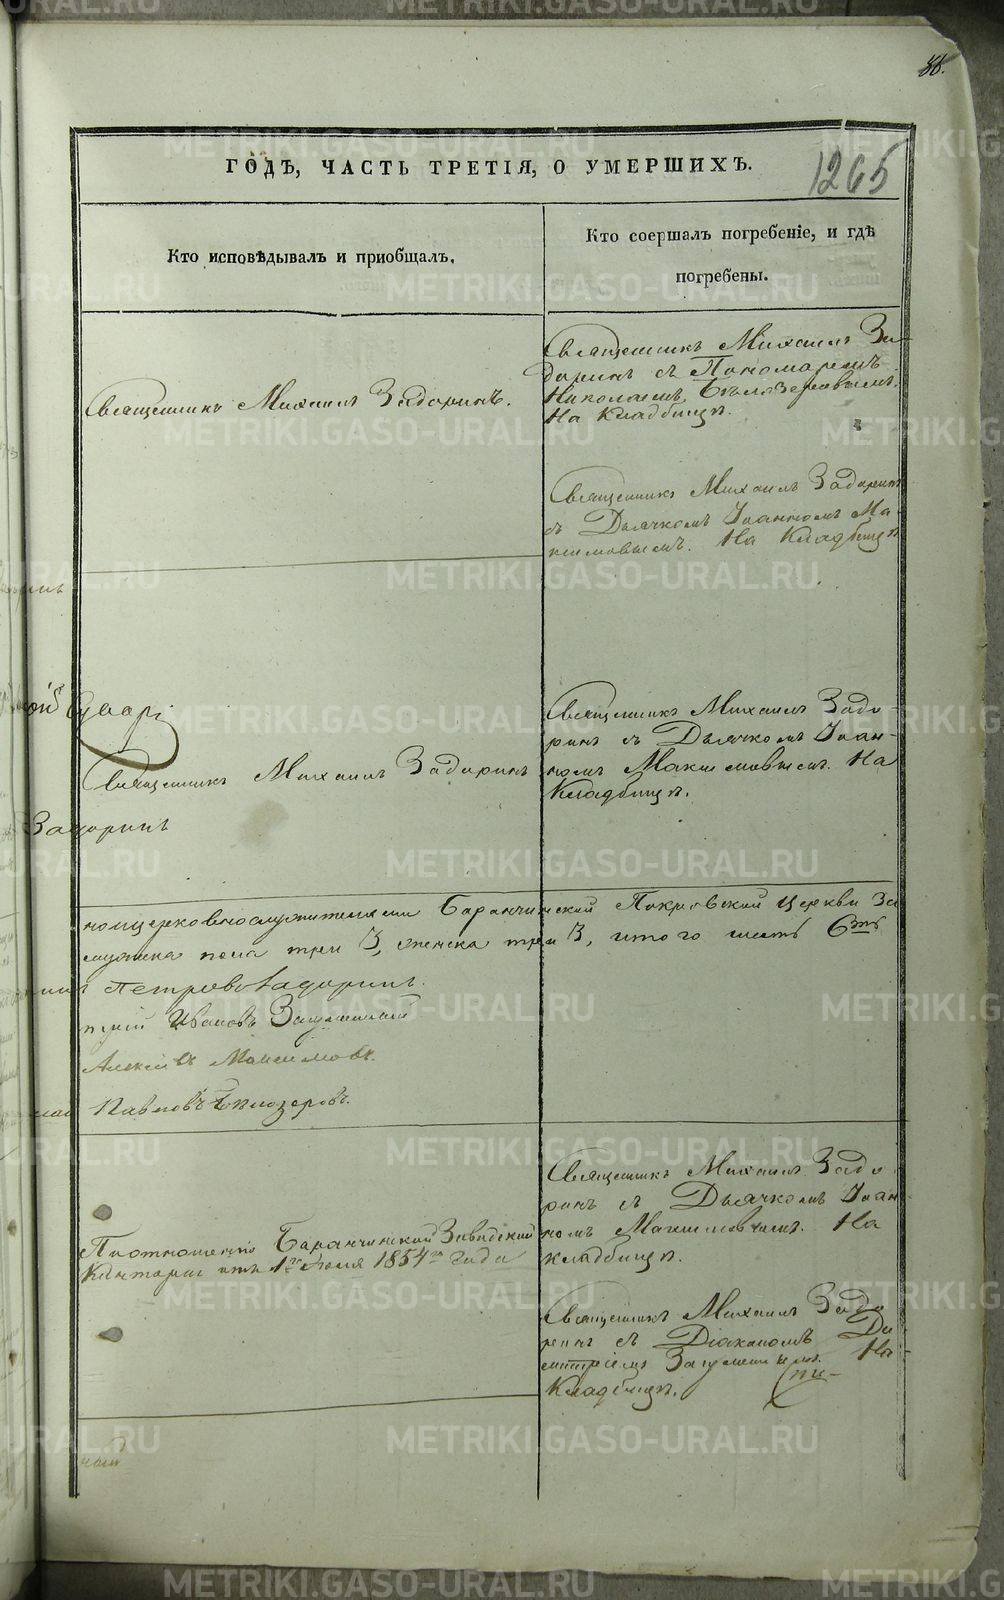 38.
1265
ГОДЪ, ЧАСТЬ ТРЕТІЯ, О УМЕРШИХЪ.
Кто исповѣдывалъ и приобщалъ.
Кто соершалъ погребеніе, и гдѣ
погребены.
Священникъ Михаилъ Задоринъ.
Священникъ Михаилъ За-
доринъ съ Пономаремъ
Николаемъ Бѣлозеровымъ.
На Кладбищѣ.
Священникъ Михаилъ Задоринъ
съ Дьячкомъ Іоанномъ Ма-
ксимовымъ. На Кладбищѣ
Священникъ Михаилъ Задоринъ
Священникъ Михаилъ Задо-
ринъ съ Дьячкомъ Іоан-
номъ Максимовымъ. На
Кладбищѣ.
Задоринъ
Баранчинской Покровской Церкви За
мужска пола три 3, женска три 3, итого шесть 6ть
Петровъ Задоринъ.
Ивановъ
Алексѣевъ Максимовъ.
Павловъ Бѣлозеровъ.
По отношенію Баранчинской Заводской
Конторы отъ 1го Іюля 1854го года
Священникъ Михаилъ Задо
ринъ съ Дьячкомъ Іоан
номъ Максимовымъ. На
кладбищѣ.
Священникъ Михаилъ Задо
ринъ съ Діакономъ Ди
митріемъ На
Кладбищѣ.
METRIKI.GASO-URAL.RU